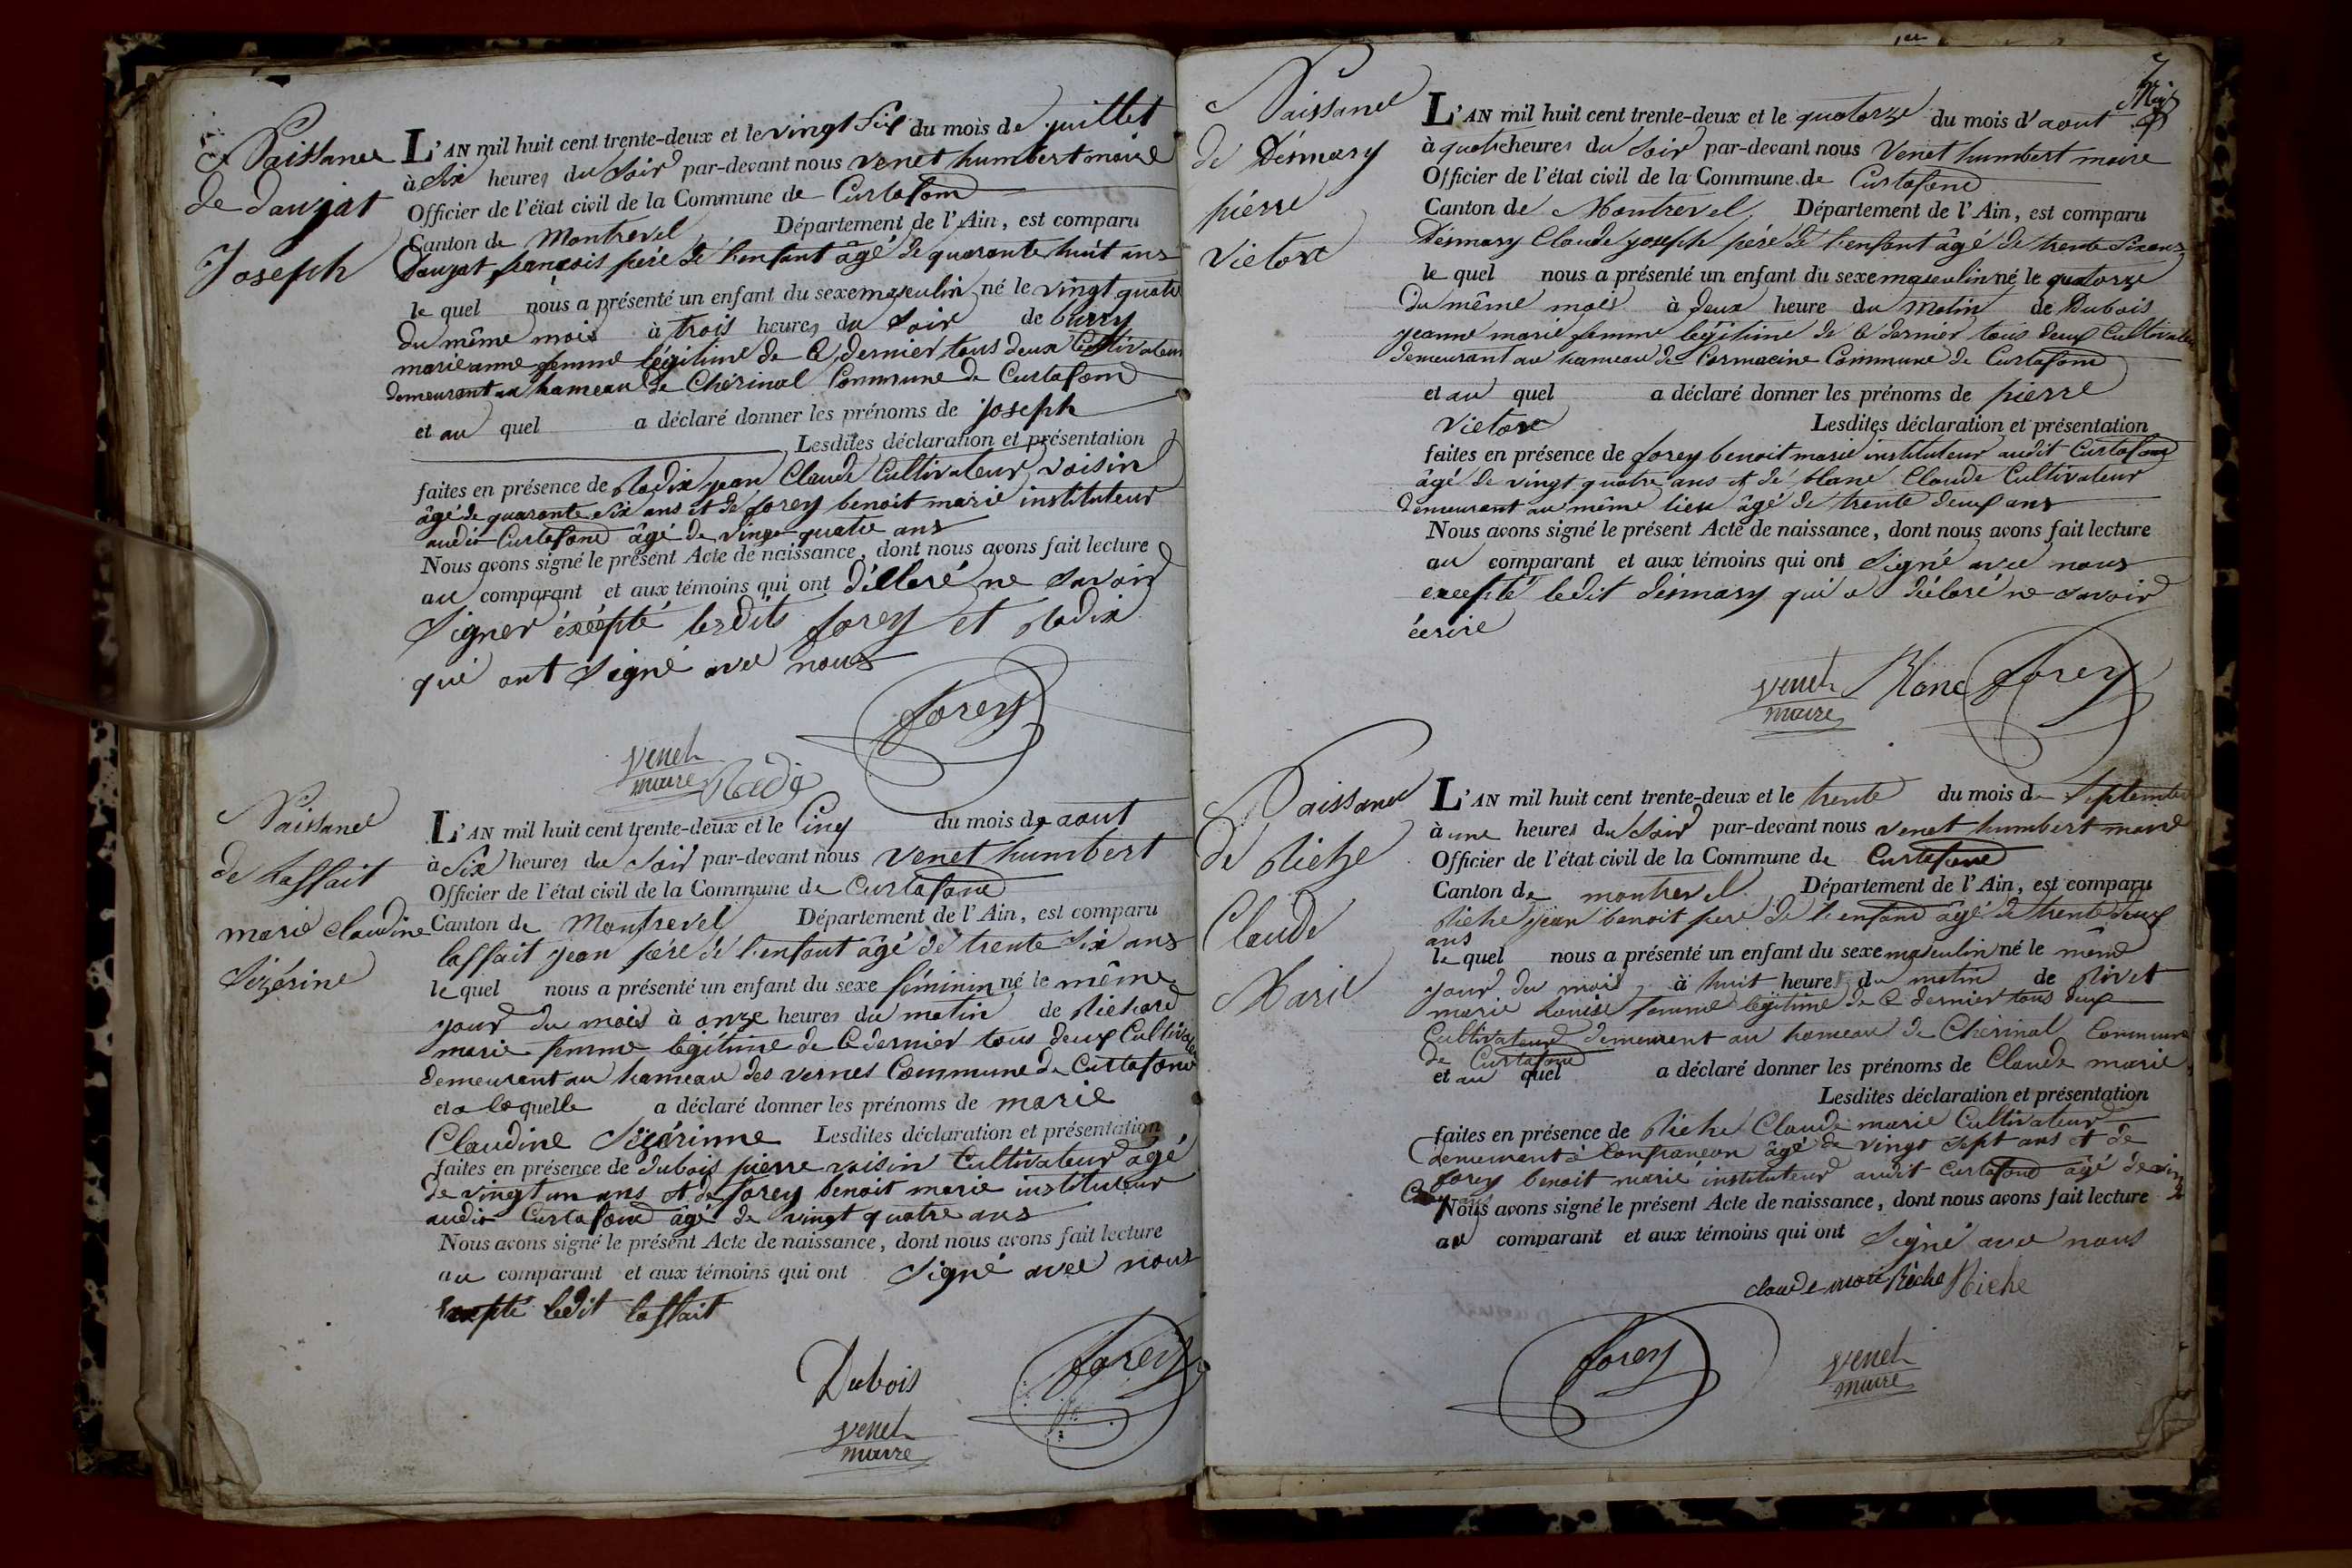 Naissance
de dauzat
Joseph
L'AN mil huit cent trente-deux et le vingt six du mois de juillet
à six heures du soir par-devant nous venet humbert maire
Officier de l'état civil de la Commune de Curtafond
Canton de Montrevel Département de l'Ain, est comparu
Dauzat françois père de l'enfant âgé de quarante huit ans
le quel nous a présenté un enfant du sexe masculin né le vingt quatre
du même mois à trois heures du soir de
marieanne femme légitime de ce dernier tous deux Cultivateurs
demeurant au hameau de Chérinal Commune de Curtafond
et au quel a déclaré donner les prénoms de joseph
Lesdites déclaration et présentation
faites en présence de Rodix jean Claude Cultivateur voisin
âgé de quarante six ans et de forey benoit marie instituteur
audit Curtafond âgé de vingt quatre ans
Nous avons signé le présent Acte de naissance, dont nous avons fait lecture
au comparant et aux témoins qui ont déclaré ne savoir
signer éxcépté lesdits forey et Rodix
qui ont signé avec nous
forey
venet
maire
Naissance
de Laffait
marie claudine
Sizérine
L'AN mil huit cent trente-deux et le Cinq du mois de aout
à six heures du soir par-devant nous venet humbert
Officier de l'état civil de la Commune de Curtafond
Canton de Montrevel Département de l'Ain, est comparu
laffait jean père de l'enfant âgé de trente six ans
le quel nous a présenté un enfant du sexe féminin né le même
jour du mois à onze heures du matin de Richard
marie femme légitime de ce dernier tous deux Cultivateurs
demeurant au hameau des vernes Commune de Curtafond
et a laquelle a déclaré donner les prénoms de marie
Claudine Sizérinne Lesdites déclaration et présentation
faites en présence de dubois pierre voisin Cultivateur âgé
de vingt un ans et de forey benoit marie instituteur
audit Curtafond âgé de vingt quatre ans
Nous avons signé le présent Acte de naissance, dont nous avons fait lecture
au comparant et aux témoins qui ont signé avec nous
excepté ledit laffait
Dubois forey
venet
maire
7
Naissance
de Désmary
pierre
Victore
L'AN mil huit cent trente-deux et le quatorze du mois d'aout
à quatre heures du soir par-devant nous Venet humbert maire
Officier de l'état civil de la Commune de Curtafond
Canton de Montrevel Département de l'Ain, est comparu
Désmary Claude joseph père de l'enfant âgé de trente six ans
le quel nous a présenté un enfant du sexe masculin né le quatorze
du même mois à deux heure du matin de Dubois
jeanne marie femme légitime de ce dernier tous deux Cultivateurs
demeurant au hameau de Cormacine Commune de Curtafond
et au quel a déclaré donner les prénoms de pierre
Victore Lesdites déclaration et présentation
faites en présence de forey benoit marie instituteur audit Curtafond
âgé de vingt quatre ans et de blanc Claude Cultivateur
demeurant au même lieu âgé de trente deux ans
Nous avons signé le présent Acte de naissance, dont nous avons fait lecture
au comparant et aux témoins qui ont signé avec nous
excepté ledit désmary qui a déclaré ne savoir
écrire
venet Blanc forey
maire
Naissance
de Riche
Claude
Marie
L'AN mil huit cent trente-deux et le trente du mois de Septembre
à une heures du soir par-devant nous venet humbert maire
Officier de l'état civil de la Commune de Curtafond
Canton de montrevel Département de l'Ain, est comparu
Riche jean benoit père de l'enfant âgé de trente deux
ans
le quel nous a présenté un enfant du sexe masculin né le même
jour du mois à huit heures du matin de Rivet
marie Louise femme légitime de ce dernier tous deux
Cultivateurs demeurant au hameau de Chérinal Commune
de Curtafond
et au quel a déclaré donner les prénoms de Claude marie
Lesdites déclaration et présentation
faites en présence de Riche Claude marie Cultivateur
demeurant à Confrançon âgé de vingt sept ans et de
forey benoit marie instituteur audit Curtafond âgé de vingt
ans
Nous avons signé le présent Acte de naissance, dont nous avons fait lecture
au comparant et aux témoins qui ont signé avec nous
claude marie Riche Riche
forey venet
maire